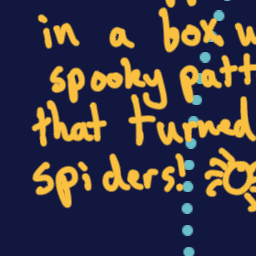 in a box
spooky patt
that turned
spiders!